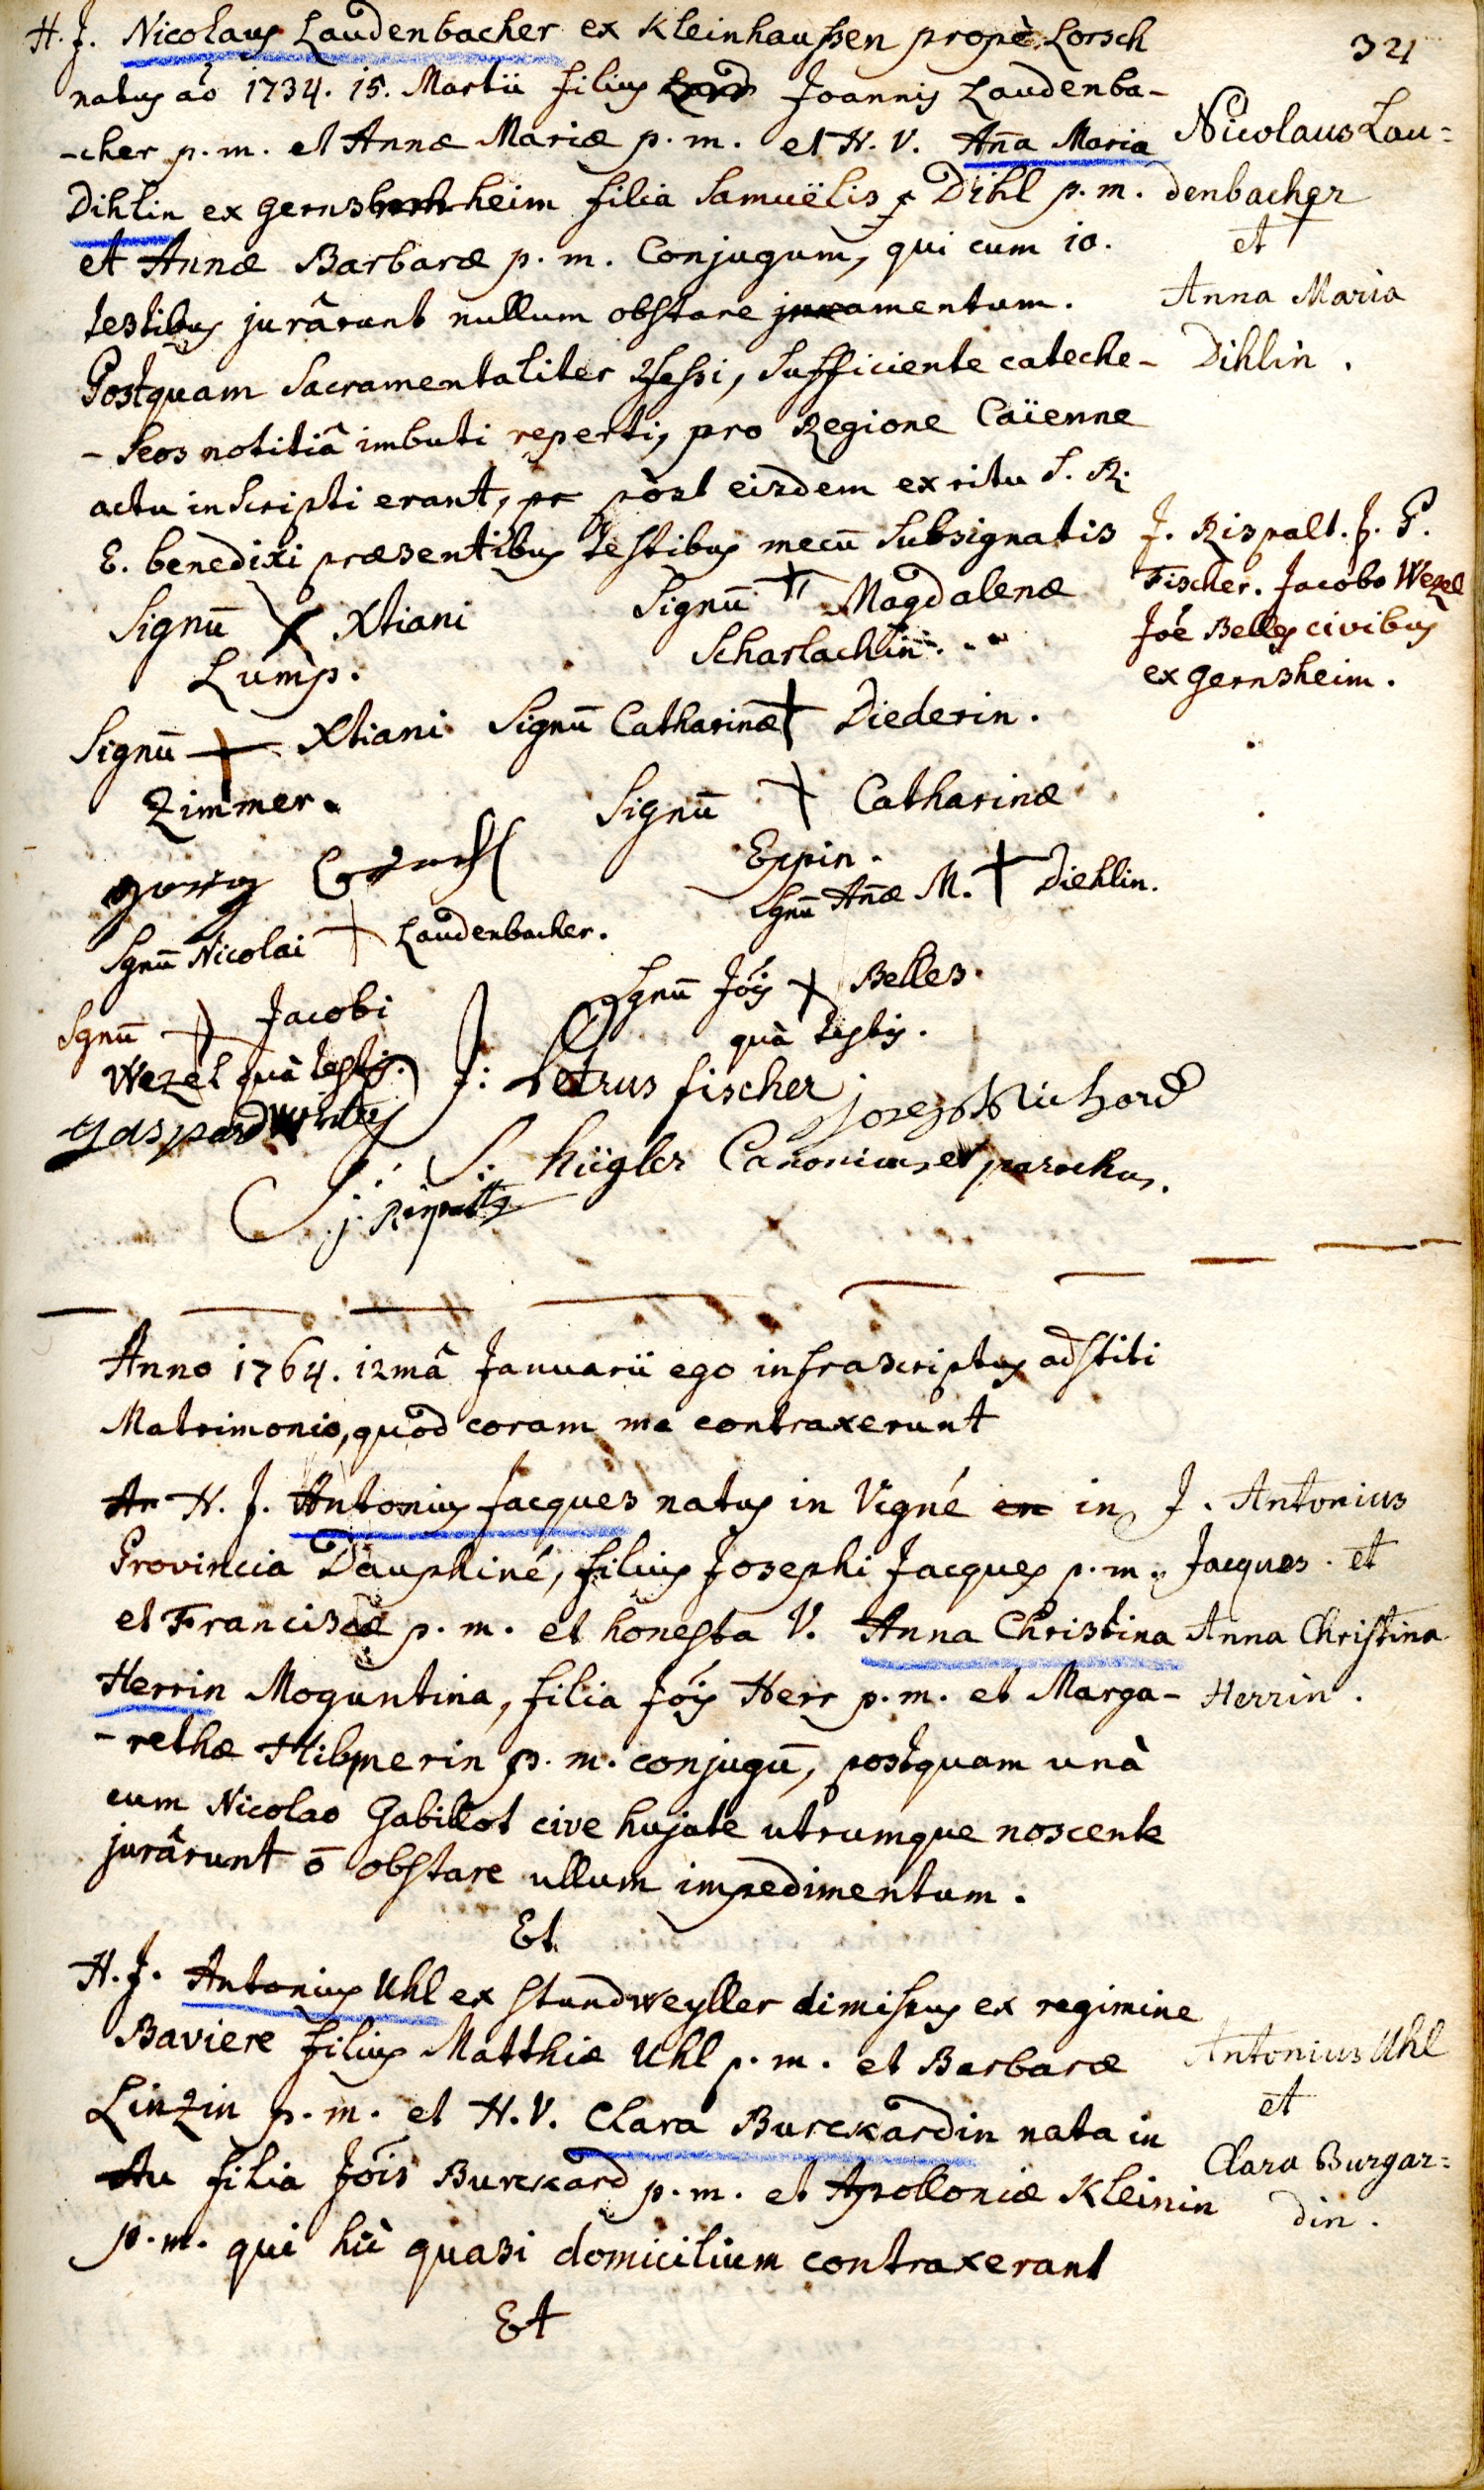 321
H. J. Nicolaus Laudenbacher ex Kleinhaussen propè Lorsch
natus aō 1734. 15. Martii filius Joannis Laudenba-
-cher p. m. et Annæ Mariæ p. m. et H. V. Ana Maria
Dihlin ex gernsheim filia Samuëlis Dihl p. m.
et Annæ Barbaræ p. m. Conjugum, qui cum io.
testibus jurârunt nullum obstare juramentum.
Postquam Sacramentaliter 2fessi, Sufficiente cateche-
-Seos notitiâ imbuti reperti, pro Regione Caïenne
actu inscripti erant, pr pòst eisdem ex ritu S. R.
E. benedixi præsentibus testibus mecū Subsignatis
Nicolaus Lau=
denbacher
et
Anna Maria
Dihlin.
J. Rispalt. J. P.
Fischer. Jacobo Wezel
Joē Belles civibus
ex gernsheim.
Signū X Xtiani
Lump.
Signū + Magdalenæ
Scharlachin.
Signū + Xtiani
Zimmer.
Signū Catharinæ + Diederin.
Signū + Catharinæ
Eppin.
Sgnū Añæ M. + Diehlin.
Sgnū Nicolai + Laudenbacher.
Sgnū + Jacobi
Wezel quà testis.
Sgnū Jōis + Belles.
quà testis.
J: Petrus fischer
joseph Richard
gaspard
J: S: hügler Canonicus et parochus.
j. Rispalt
Anno 1764. 12mâ Januarii ego infrascriptus adstiti
Matrimonio, quod coram me contraxerunt
An H. J. Antonius Jacques natus in Vigné en in
Provincia Dauphiné, filius Josephi Jacques p. m.
et Franciscæ p. m. et honesta V. Anna Christina
Herrin Moguntina, filia Jōis Herr p. m. et Marga-
-rethæ Hibnerin p. m. conjugū, postquam unà
cum Nicolao Gabillot cive hujate utrumque noscente
jurârunt ō obstare ullum impedimentum.
J. Antonius
Jacques. et
Anna Christina
Herrin.
Et
H. J. Antonius Uhl ex Standweyller dimissus ex regimine
Baviere filius Matthiæ Uhl p. m. et Barbaræ
Linzin p. m. et H. V. Clara Burckardin nata in
Au filia Jōis Burckard p. m. et Apolloniæ Kleinin
p. m. qui hìc quasi domicilium contraxerant
Antonius Uhl
et
Clara Burgar=
din.
Et